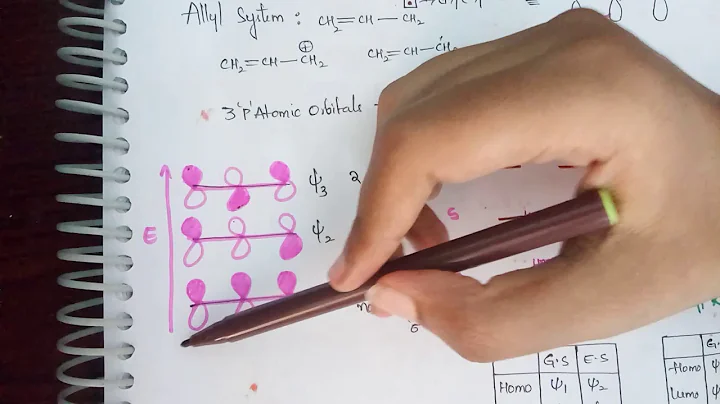 Allyl System : CH2=CH—CH2
CH2=CH—CH2 ⊕
CH2=CH—CH2
3 'P' Atomic Orbitals -
E
ψ3 2
ψ2
S
6
G.S E.S
Homo ψ1 ψ2
G.
Homo ψ
Lumo ψ